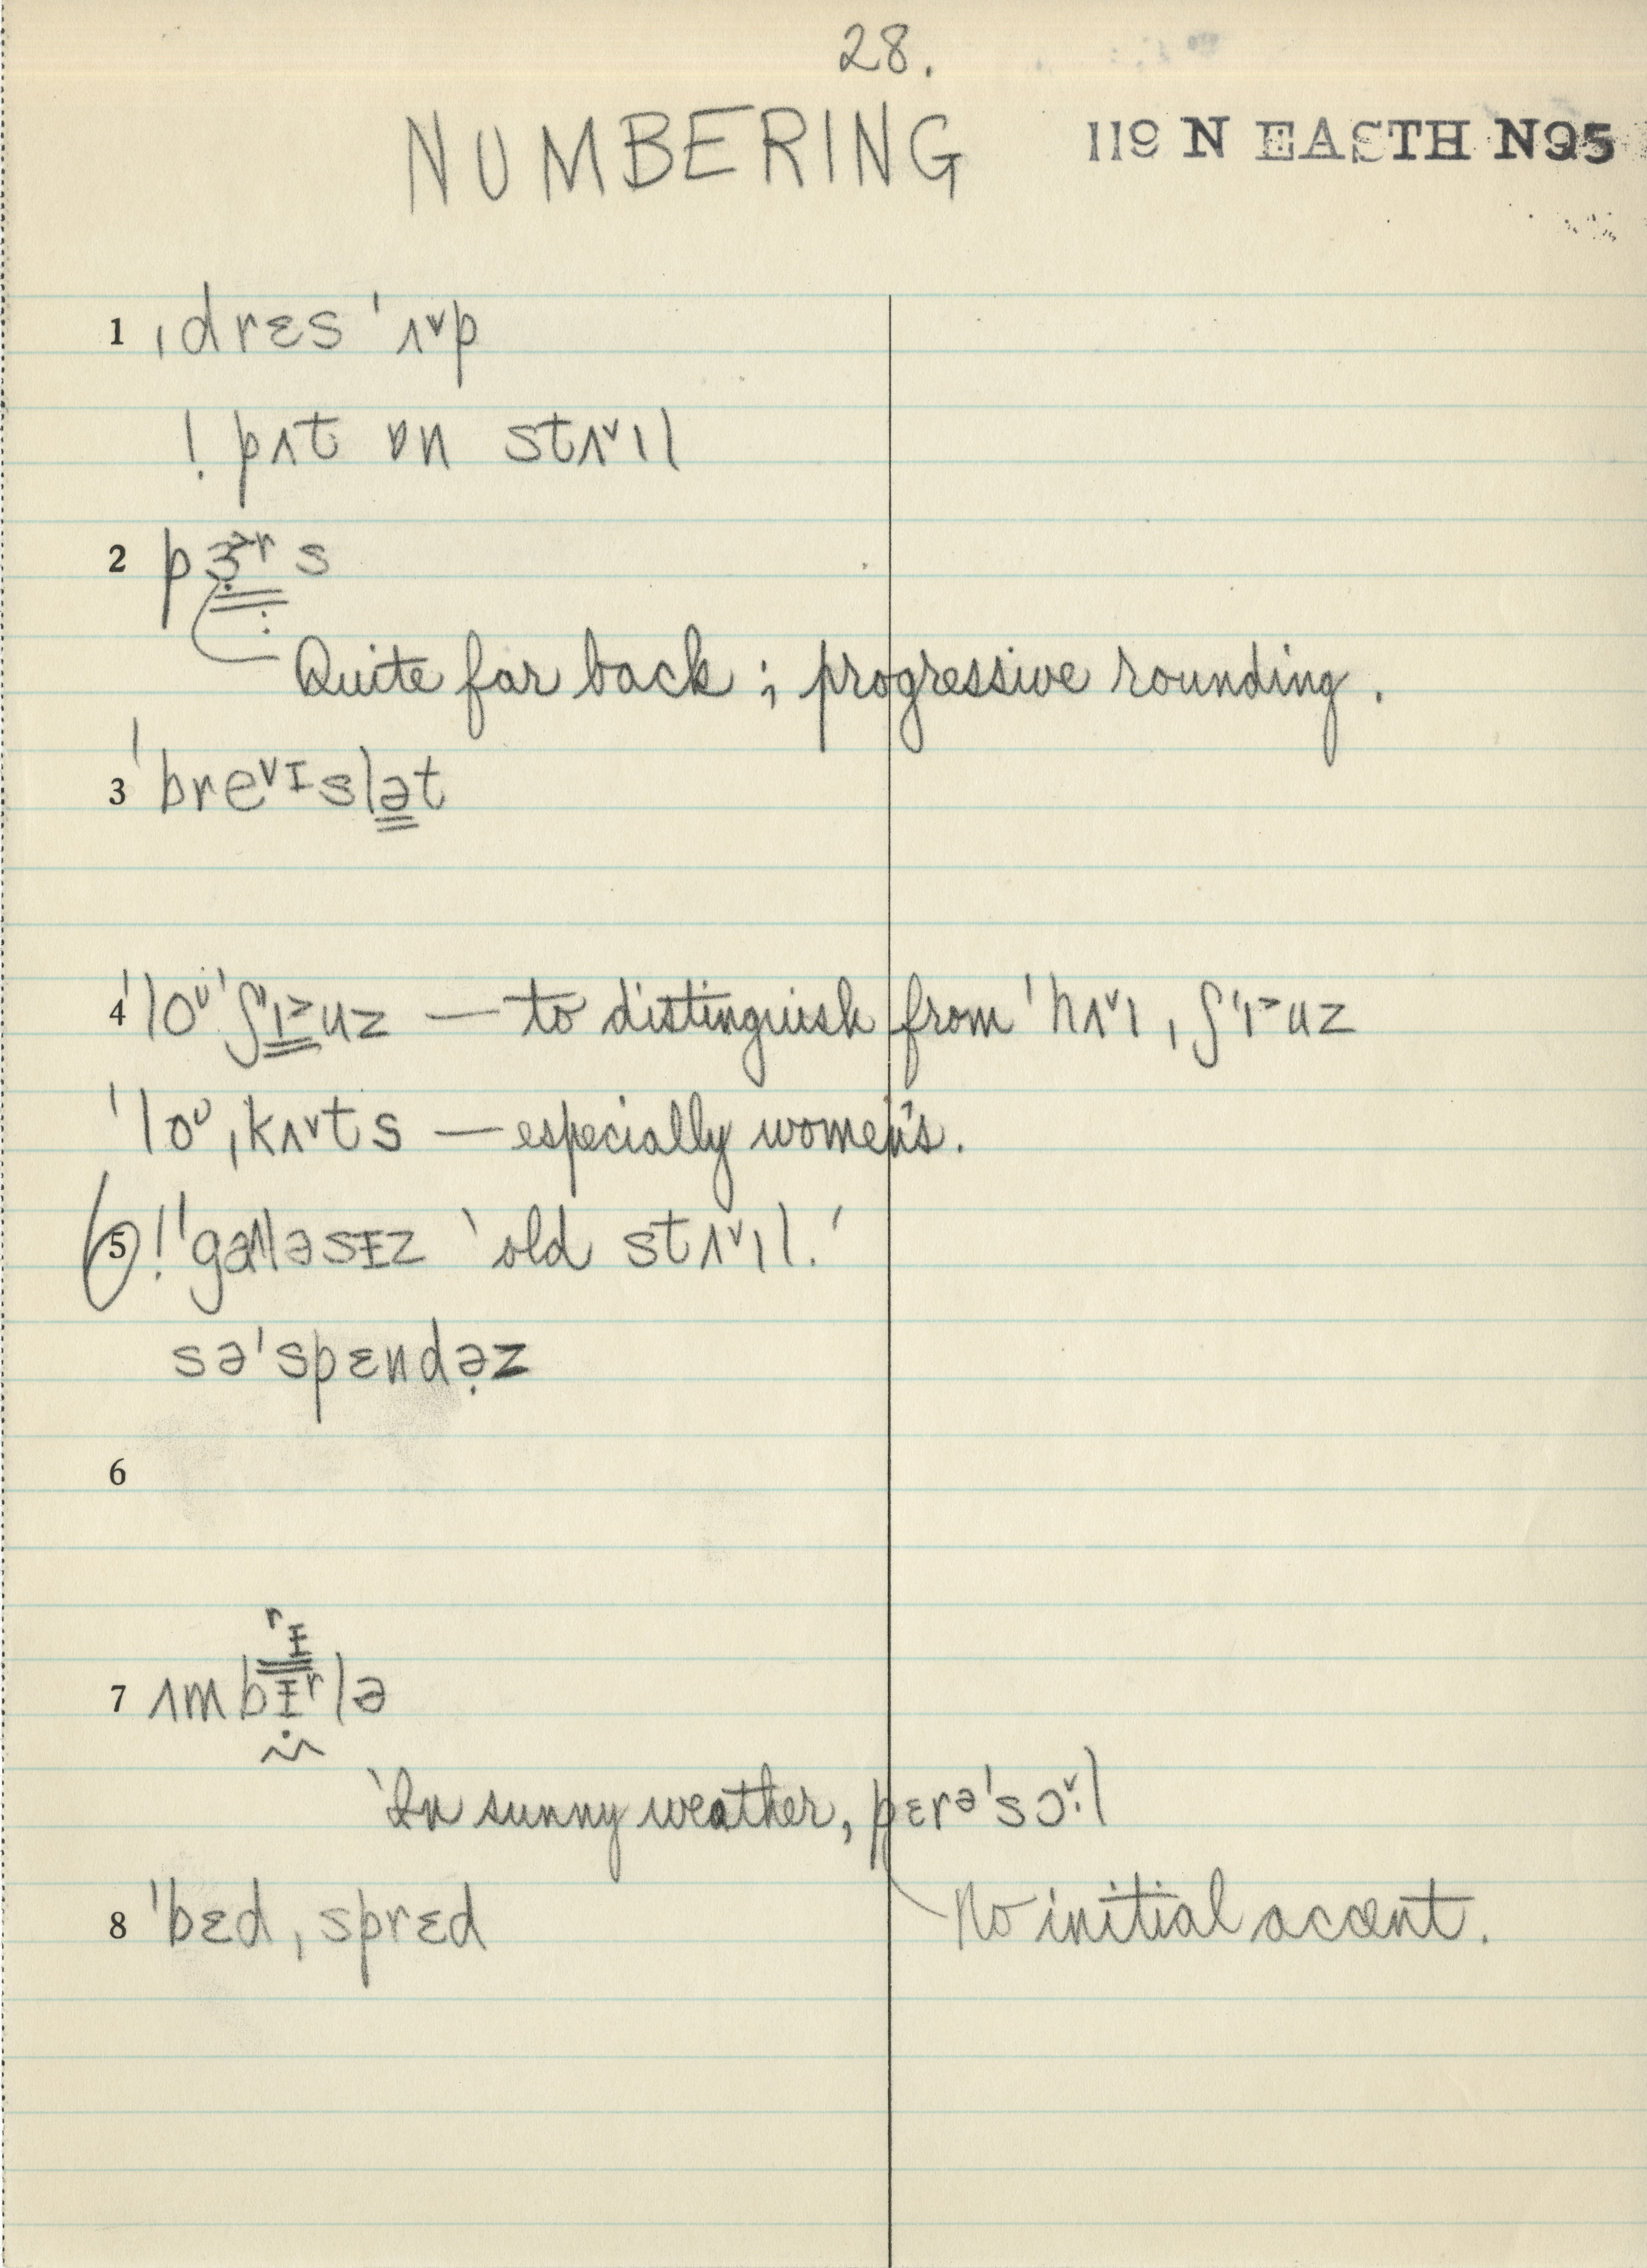 28.
NUMBERING 119 N EASTH N95
1 ˌdrɛs ˈʌ˅p
! pʌt ɒn stʌ˅ɪl
2 pɜ̣˃ʳs
Quite far back; progressive rounding.
3 ˈbre˅ɪslə̳t
4 ˈloᶷˈʃɪ̳˃uz — to distinguish from ˈhʌ˅ɪˌʃɪ˃uz
ˈloᶷˌkʌ˅ts — especially women's.
5 !ˈgaləsɪz 'old stʌ˅ɪl.'
səˈspɛndə̣z
6
7 ʌmbɨʳlə
ʳɨ
'In sunny weather, pɛrəˈsɔ˅·l
No initial accent.
8 ˈbɛdˌsprɛd